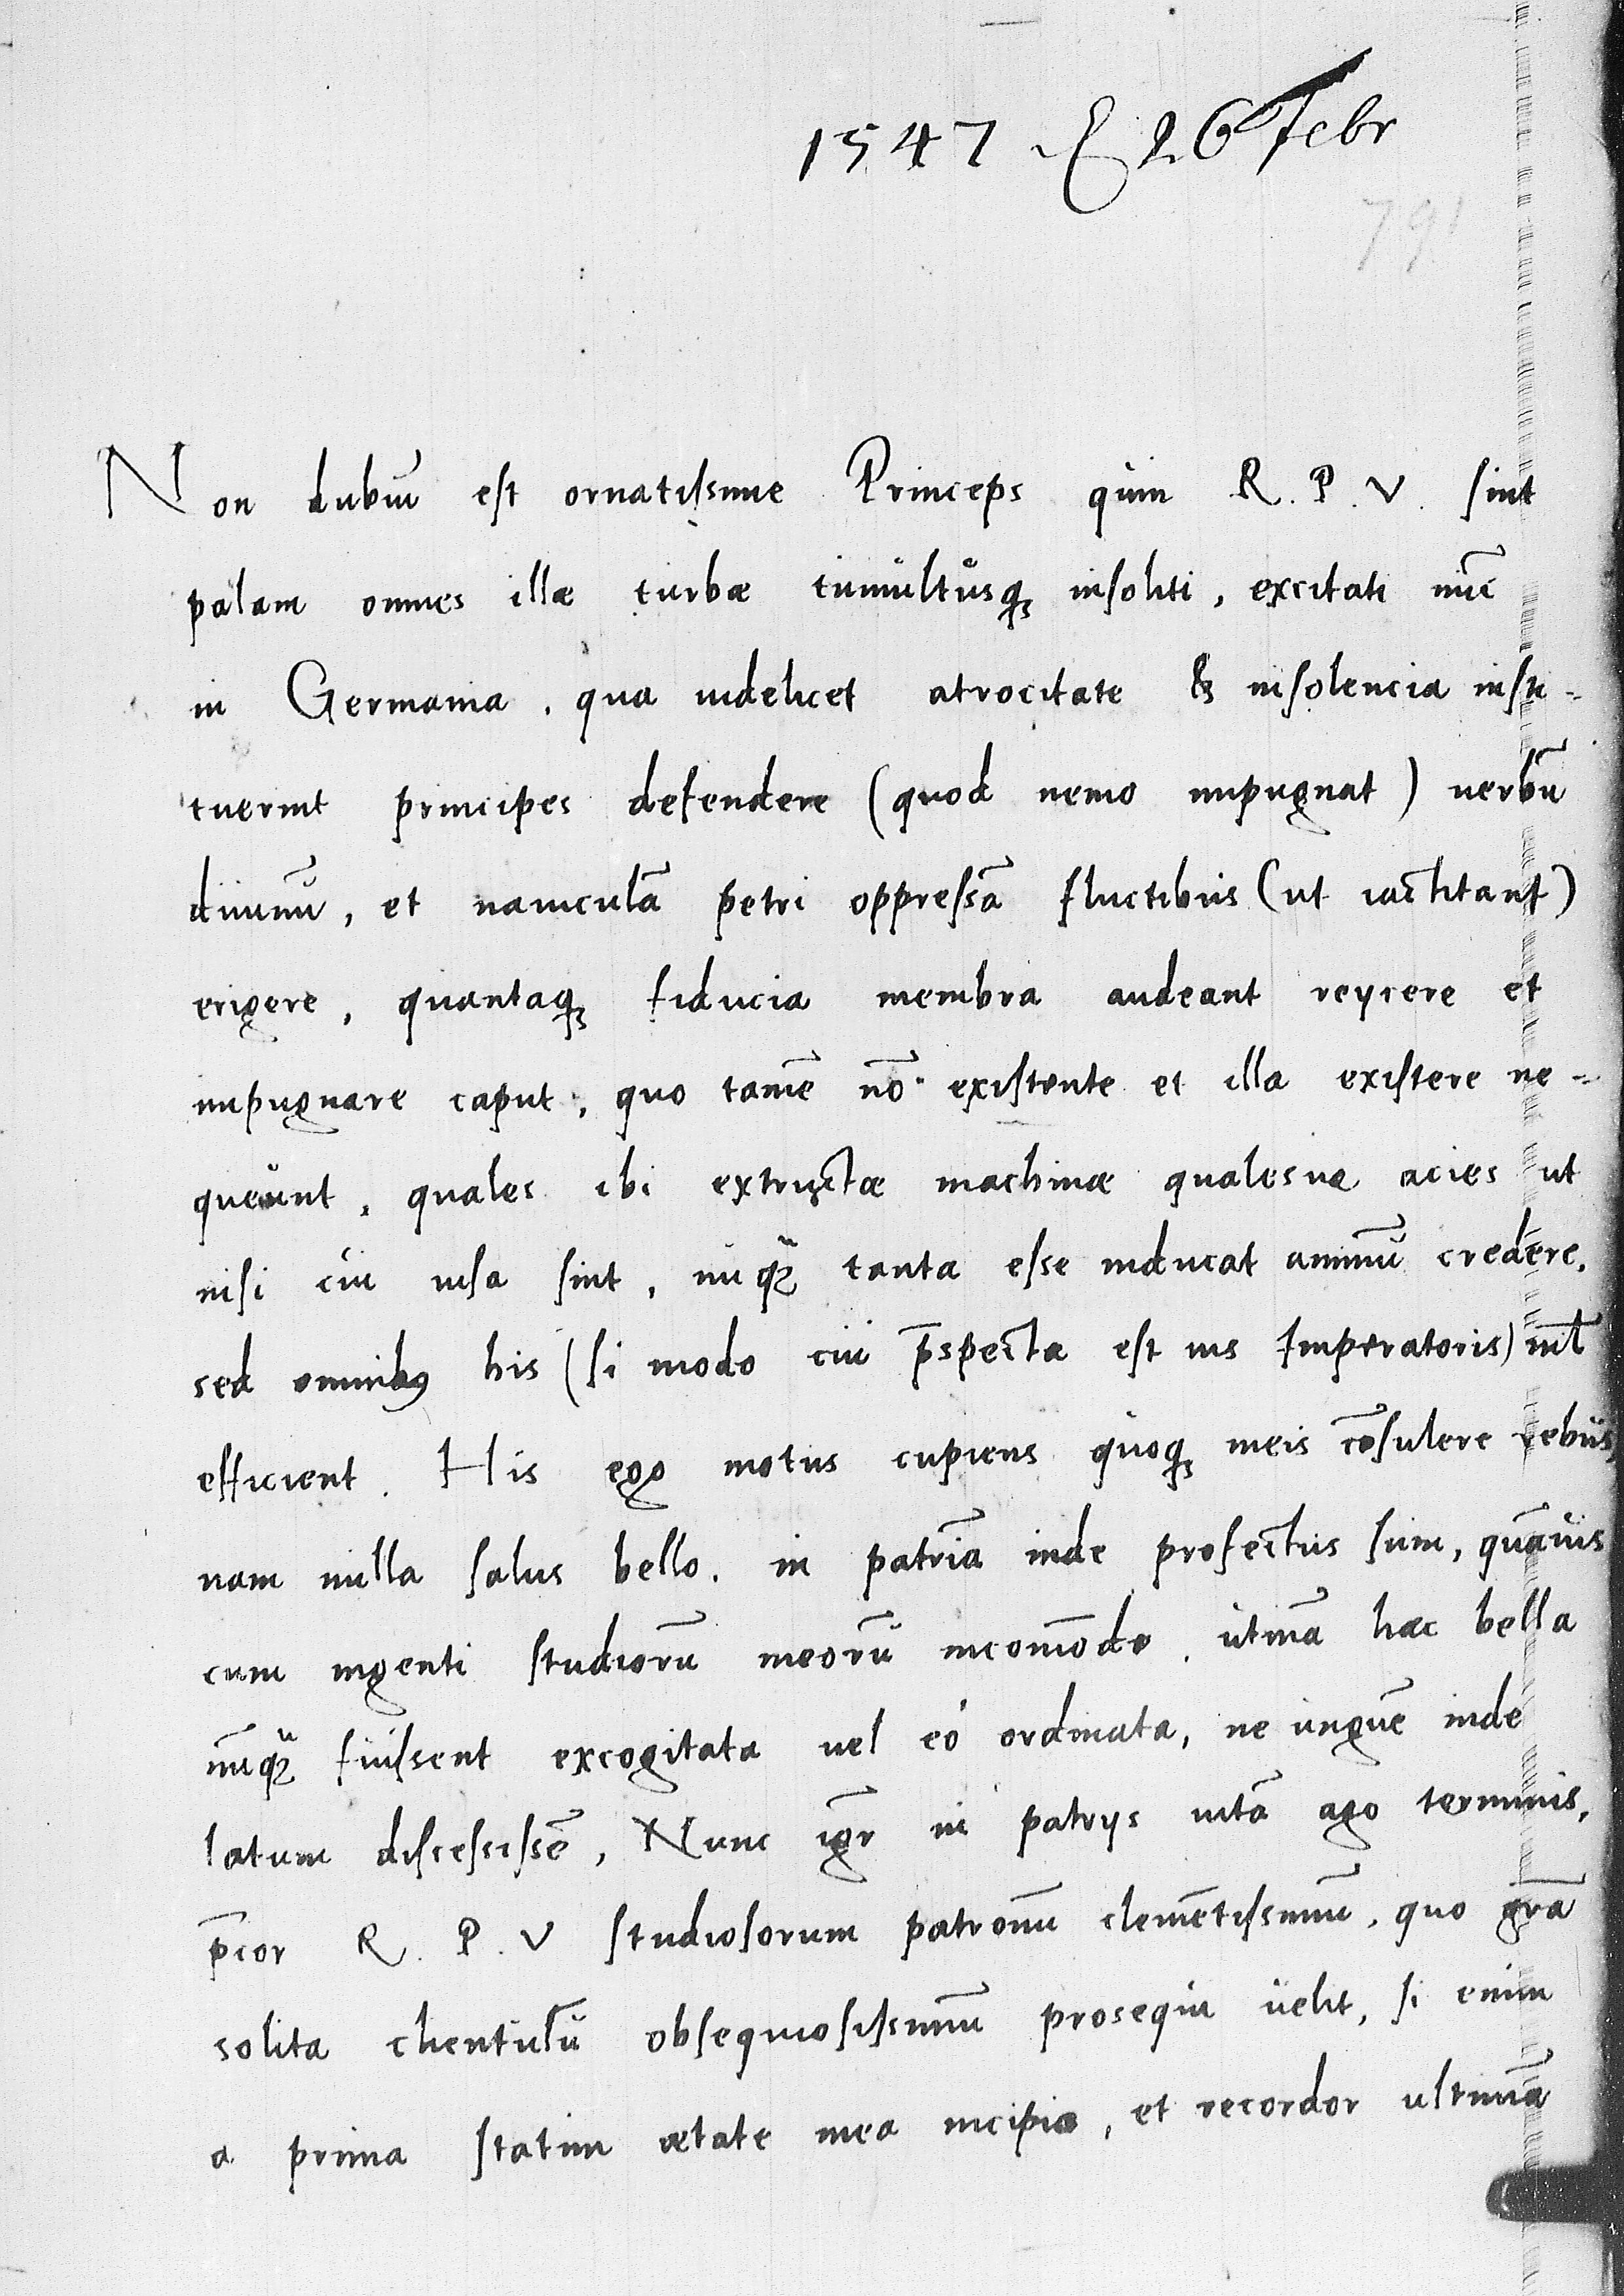 1547 E 26 Febr
791
Non dubiū est ornatissime Princeps quin R. P. V. sint
palam omnes illæ turbæ tumultusq₃ insoliti, excitati nūc
in Germania, qua uidelicet atrocitate & insolencia insti-
tuerint principes defendere (quod nemo impugnat) uerbū
diuinū, et nauiculā petri oppressā fluctibus (ut iactitant)
erigere, quantaq₃ fiducia membra audeant reycere et
impugnare caput, quo tamē nō existente et illa existere ne-
queunt, quales ibi extructæ machinæ qualesue acies ut
nisi cui uisa sint, nūq̄ȝ tanta esse inducat animū credere,
sed omnibꝰ his (si modo cui p̄specta est uis Imperatoris) nil
efficient. His ego motus cupiens quoq₃ meis cōsulere rebus,
nam nulla salus bello, in patriā inde profectus sum, quāuis
cum ingenti studiorū meorū incomodo, utinā hæc bella
nūq̄ȝ fuissent excogitata uel eó ordinata, ne unguē inde
latum discessissē, Nunc igr̄ in patrijs uitā ago terminis,
p̄cor R. P. V studiosorum patronū clemētissimū, quo gr̄a
solita clientulū obsequiosissimū prosequi uelit, si enim
a prima statim ætate mea incipio, et recordor ultimā